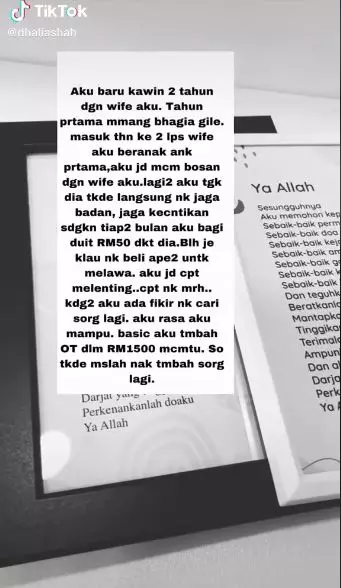 TikTok
@dhaliashah
Aku baru kawin 2 tahun
dgn wife aku. Tahun
prtama mmang bhagia gile.
masuk thn ke 2 lps wife
aku beranak ank
prtama,aku jd mcm bosan
dgn wife aku.lagi2 aku tgk
dia tkde langsung nk jaga
badan, jaga kecntikan
sdgkn tiap2 bulan aku bagi
duit RM50 dkt dia.Blh je
klau nk beli ape2 untk
melawa. aku jd cpt
melenting..cpt nk mrh..
kdg2 aku ada fikir nk cari
sorg lagi. aku rasa aku
mampu. basic aku tmbah
OT dlm RM1500 mcmtu. So
tkde mslah nak tmbah sorg
lagi.
Perkenankanlah doaku
Ya Allah
Ya Allah
Sesungguhnya
Aku memohon
Sebaik-baik
Sebaik-baik doa
Sebaik-baik
Sebaik-baik
Sebaik-baik
Sebaik-baik
Sebaik-baik
Dan
Ya